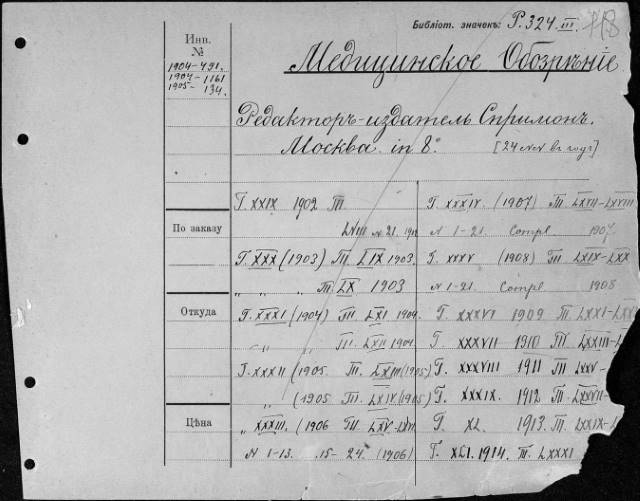 Библіот. значекъ: P. 324 III 118
Инв. №
1904-491.
1904-1161
1905-134.
Медицинское Обозрѣніе
Редакторъ-издатель Спримонъ.
Москва in 8°. [24 №№ въ годъ]
Г. XXIX 1902 Т.
LVIII № 21. 1902
Г. XXX (1903) Т. LIX 1903.
" " Т. LX 1903
Г. XXXI (1904) Т. LXI 1904.
" " Т. LXII 1904.
Г. XXXII (1905. Т. LXIII (1905)
" (1905 Т. LXIV. (1905)
" XXXIII. (1906 Т. LXV-
N 1-13. 15-24. (1906)
Г. XXXIV. (1907) Т. LXVII-LXVIII
N 1-21. Compl 1907
Г. XXXV (1908) Т. LXIX-LXX
N 1-21. Compl 1908
Г. XXXVI 1909 Т. LXXI-
Г. XXXVII 1910 Т. LXXIII-
Г. XXXVIII 1911 Т. LXXV-
Г. XXXIX. 1912 Т. LXXVII-
Г. XL. 1913. Т. LXXIX-
Г. XLI. 1914. Т. LXXXI
По заказу
Откуда
Цѣна